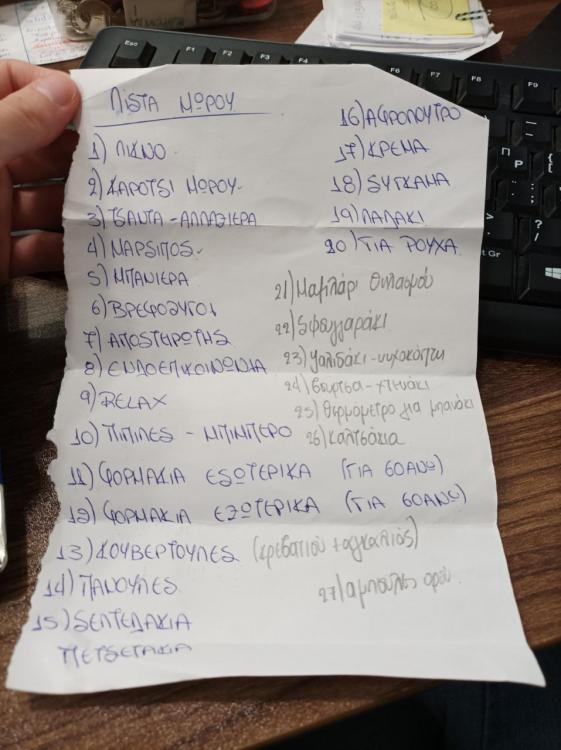 ΛΙΣΤΑ ΜΩΡΟΥ
1) ΛΙΚΝΟ
2) ΚΑΡΟΤΣΙ ΜΩΡΟΥ
3) ΤΣΑΝΤΑ - ΑΛΛΑΞΙΕΡΑ
4) ΜΑΡΣΙΠΟΣ
5) ΜΠΑΝΙΕΡΑ
6) ΒΡΕΦΟΖΥΓΟΣ
7) ΑΠΟΣΤΕΙΡΩΤΗΣ
8) ΕΝΔΟΕΠΙΚΟΙΝΩΝΙΑ
9) RELAX
10) ΠΙΠΙΛΕΣ - ΜΠΙΜΠΕΡΟ
11) ΦΟΡΜΑΚΙΑ ΕΣΩΤΕΡΙΚΑ (ΓΙΑ 60ΑΝΩ)
12) ΦΟΡΜΑΚΙΑ ΕΞΩΤΕΡΙΚΑ (ΓΙΑ 60ΑΝΩ)
13) ΚΟΥΒΕΡΤΟΥΛΕΣ (κρεβατιού + αγκαλιάς)
14) ΠΑΝΟΥΛΕΣ
15) ΣΕΝΤΕΔΑΚΙΑ
ΠΕΤΣΕΤΑΚΙΑ
16) ΑΦΡΟΛΟΥΤΡΟ
17) ΚΡΕΜΑ
18) ΣΥΓΚΑΜΑ
19) ΛΑΔΑΚΙ
20) ΓΙΑ ΡΟΥΧΑ
21) Μαξιλάρι Θηλασμού
22) Σφουγγαράκι
23) ψαλιδάκι - νυχοκόπτη
24) βούρτσα - χτενάκι
25) θερμόμετρο για μπανάκι
26) καλτσάκια
27) αμπούλες ορού
Esc
F1
F2
F3
F4
F6
F7
F8
F9